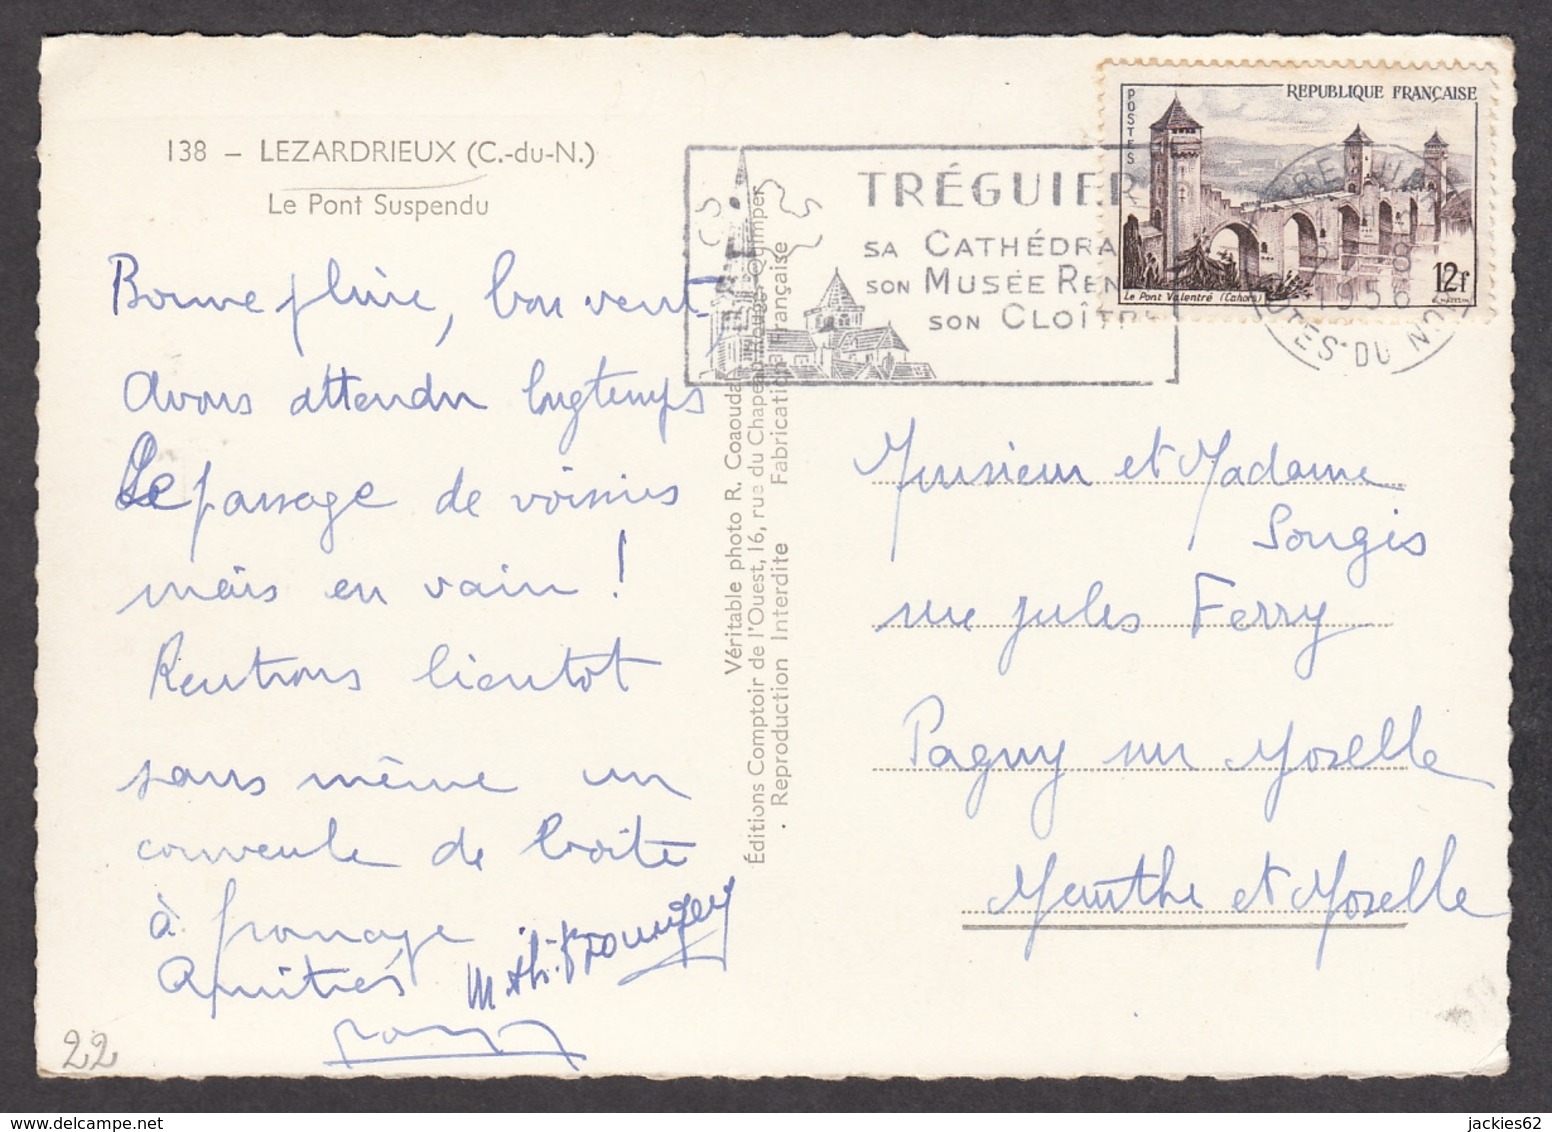 138 – LEZARDRIEUX (C.-du-N.)
Le Pont Suspendu
Bonne pluie, bon vent,
avons attendu longtemps
le passage de voisins
mais en vain !
Rentrons bientot
sans même un
couvercle de boite
à fromage
Amitiés
22
Véritable photo R. Coaouda
Éditions Comptoir de l'Ouest, 16, rue du Chapeau-Rouge - Quimper
Reproduction Interdite Fabrication Française
TRÉGUIER
SA CATHÉDRA
SON MUSÉE REN
SON CLOÎTR
POSTES
REPUBLIQUE FRANÇAISE
12f
Le Pont Valentré (Cahors)
1956
DU NORD
Monsieur et Madame
Songis
rue Jules Ferry
Pagny sur Moselle
Meurthe et Moselle
delcampe.net
jackies62